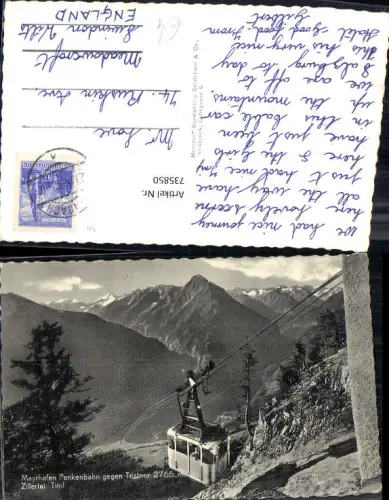 We had nice journey
here lovely scene
all the way have
just had nice
here & the Girls
have just been
in this cable car
up the mountains.
We are off to
Salzburg to day
this very nice
Hotel - good food. From
Gilbert
Mr. Love
74. Ruskin Ave,
Meadowcroft
Swindon Wilts
ENGLAND
Artikel Nr.
735850
Mayrhofen Penkenbahn gegen Tristner 2765 m
Zillertal Tirol